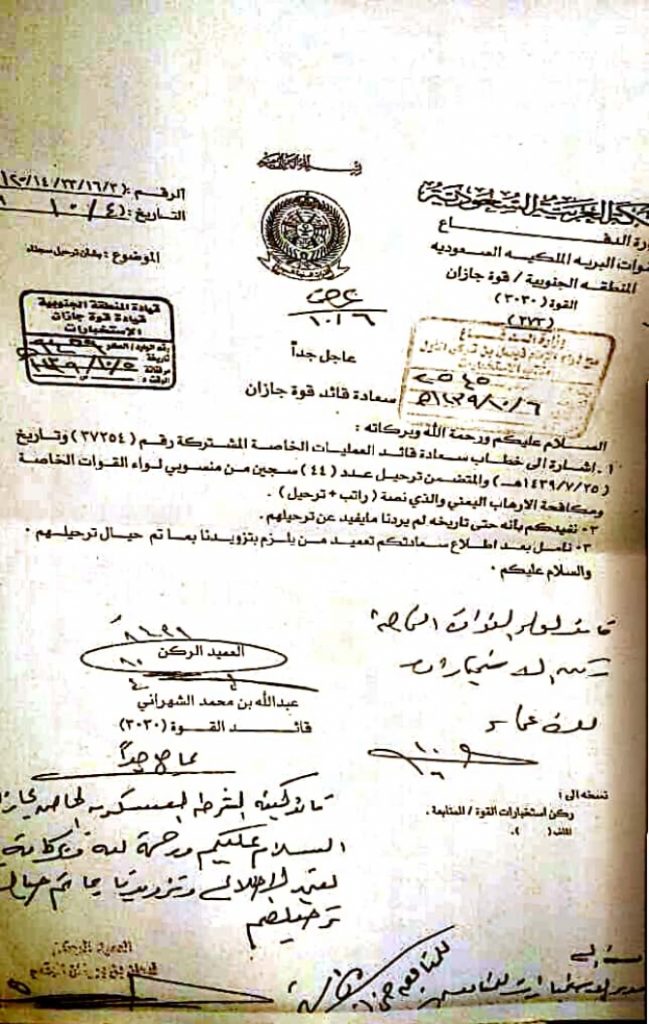 بسم الله الرحمن الرحيم
المملكة العربية السعودية
وزارة الدفاع
القوات البريه الملكيه السعوديه
المنطقه الجنوبية / قوة جازان
القوة (٣٠٣٠)
(٢٧٣)
الرقم :
التاريخ : ١٠/٤
الموضوع : بشان ترحيل سجناء
قيادة المنطقة الجنوبية
قيادة قوة جازان
الإستخبارات
١٤٣٩/١٠/٥
وزارة الدفاع
٢٥٤٥
١٤٣٩/١٠/٦هـ
١٠/٦
عاجل جداً
سعادة قائد قوة جازان
السلام عليكم ورحمة الله وبركاته :
١. إشارة الى خطاب سعادة قائد العمليات الخاصة المشتركة رقم (٣٧٢٥٤) وتاريخ
(١٤٣٩/٧/٢٥هـ) والمتضمن ترحيل عدد (٤٤) سجين من منسوبي لواء القوات الخاصة
ومكافحة الارهاب اليمني والذي نصة (راتب + ترحيل) .
٢. نفيدكم بأنه حتى تاريخه لم يردنا مايفيد عن ترحيلهم.
٣. نامل بعد اطلاع سعادتكم تعميد من يلزم بتزويدنا بما تم حيال ترحيلهم .
والسلام عليكم .
قائد لواء القوات الخاصة
ركن الاستخبارات
١٠/٦
العميد الركن
عبدالله بن محمد الشهراني
قائد القوة (٣٠٣٠)
عاجل جداً
نسخه الى :
ركن استخبارات القوة / للمتابعة .
الملف ( ).
قائد كتيبة الشرطة العسكرية الخاصة بجازان
السلام عليكم ورحمة الله وبركاته
نعتمد الاطلاع وتزويدنا بما تم حيال
ترحيلهم
العميد الركن
للمتابعة